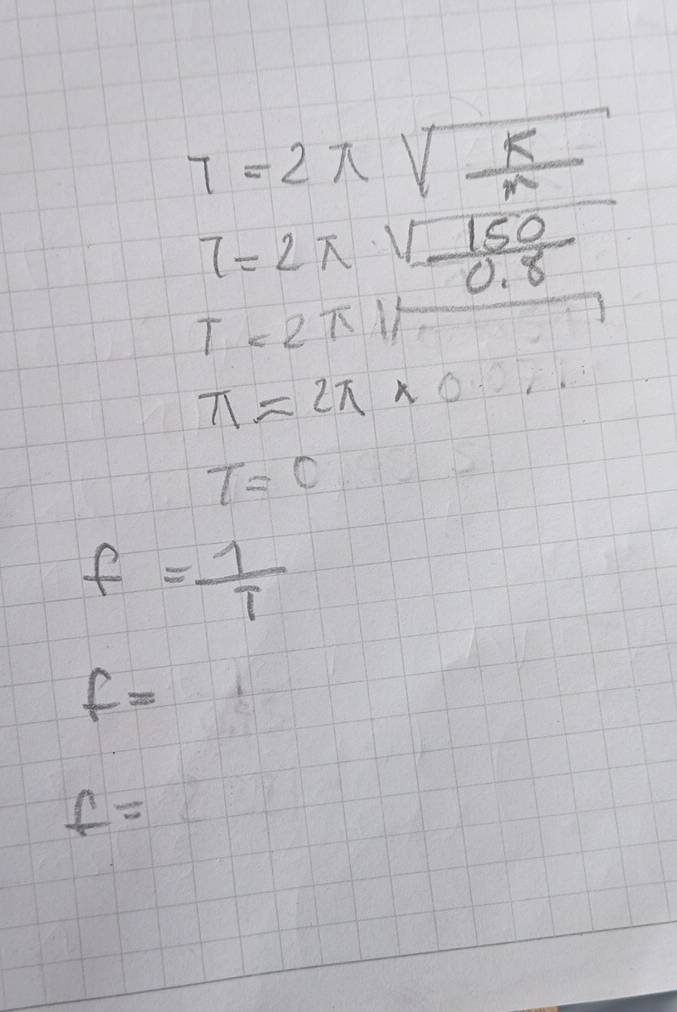 T = 2π √(K/m)
T = 2π √(150/0.8)
T = 2π √
π = 2π × 0.071
T = 0
f = 1/T
f =
f =